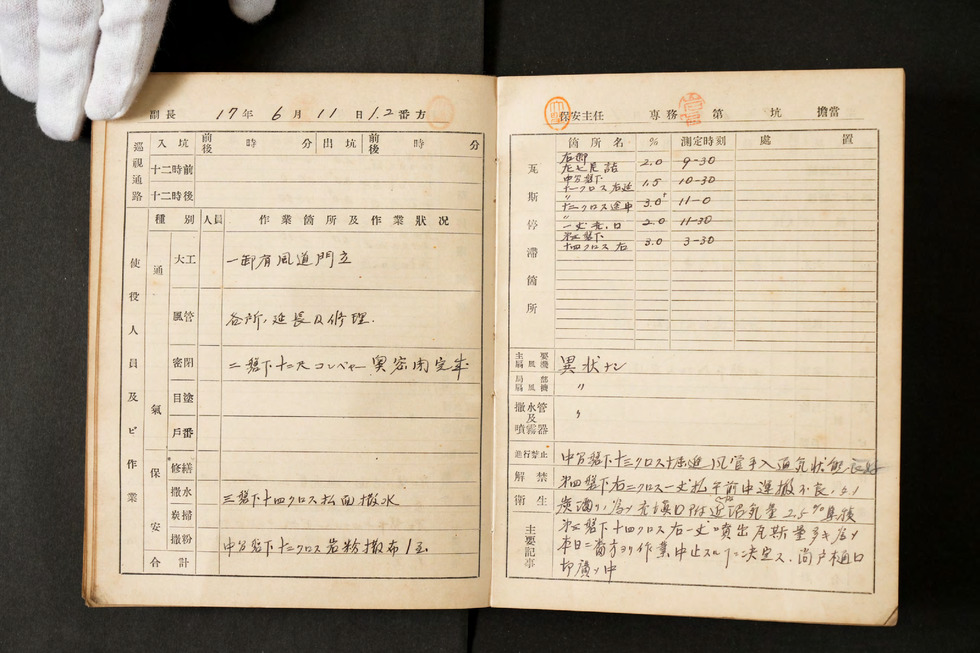 副長 17年 6月 11日 1.2番方
巡視通路
入坑 前後 時 分 出坑 前後 時 分
十二時前
十二時後
使役人員及ビ作業
種別 人員 作業箇所及作業狀況
通氣
大工 一卸有風道門立
風管 各所、延長及修理.
密閉 二盤下十二尺コンベヤー奧密閉完成
目塗
戶番
保安
修繕
撒水 三盤下十四クロス払面撒水
炭掃
撒粉 中分盤下十二クロス岩粉撒布
合計
保安主任 專務 第 坑 擔當
瓦斯停滯箇所
箇所名 % 測定時刻 處置
右卸
左七尺詰 2.0 9-30
中分盤下
十一クロス右延 1.5 10-30
〃
十三クロス途中 3.0 11-0
〃
2.0 11-30
第三盤下
十四クロス右 3.0 3-30
主要扇風機 異狀ナシ
局部扇風機 〃
撒水管及噴霧器 〃
進行禁止
解禁
衛生
主要記事
中分盤下十三クロス掘進風管手入通気狀態良好
第四盤下右二クロス一丈払午前中運搬不良
附近瓦斯量2.5%
第三盤下十四クロス右一丈噴出瓦斯量多キ為メ
本日二番方ヨリ作業中止スル 決定ス. 尚戸樋口
切廣メ中